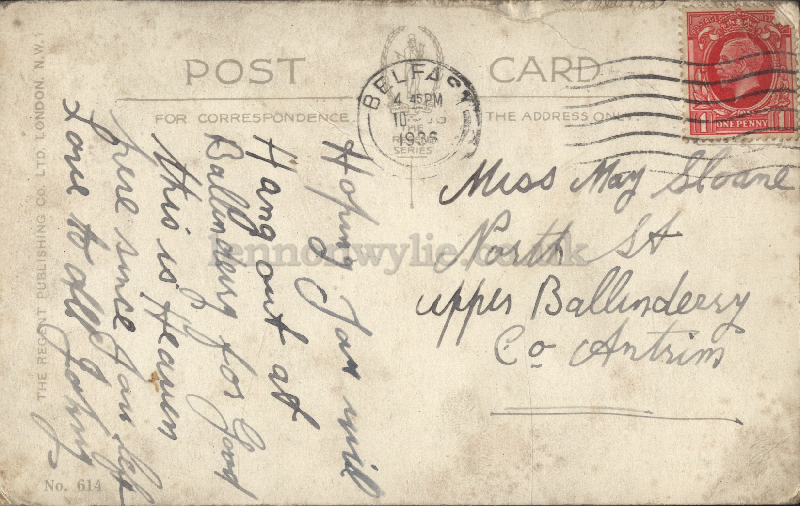 POST CARD
FOR CORRESPONDENCE
THE ADDRESS ONLY
BELFAST
4 45 PM
10
1936
SERIES
ONE PENNY
1 1
THE REGENT PUBLISHING CO. LTD. LONDON. N.W.1
No. 614
Hoping You will
Hang out at
Ballinderry for Good
this is Heaven
here since You left
Love to all Johny
Miss May Sloane
North St
upper Ballinderry
Co Antrim
lennonwylie.co.uk